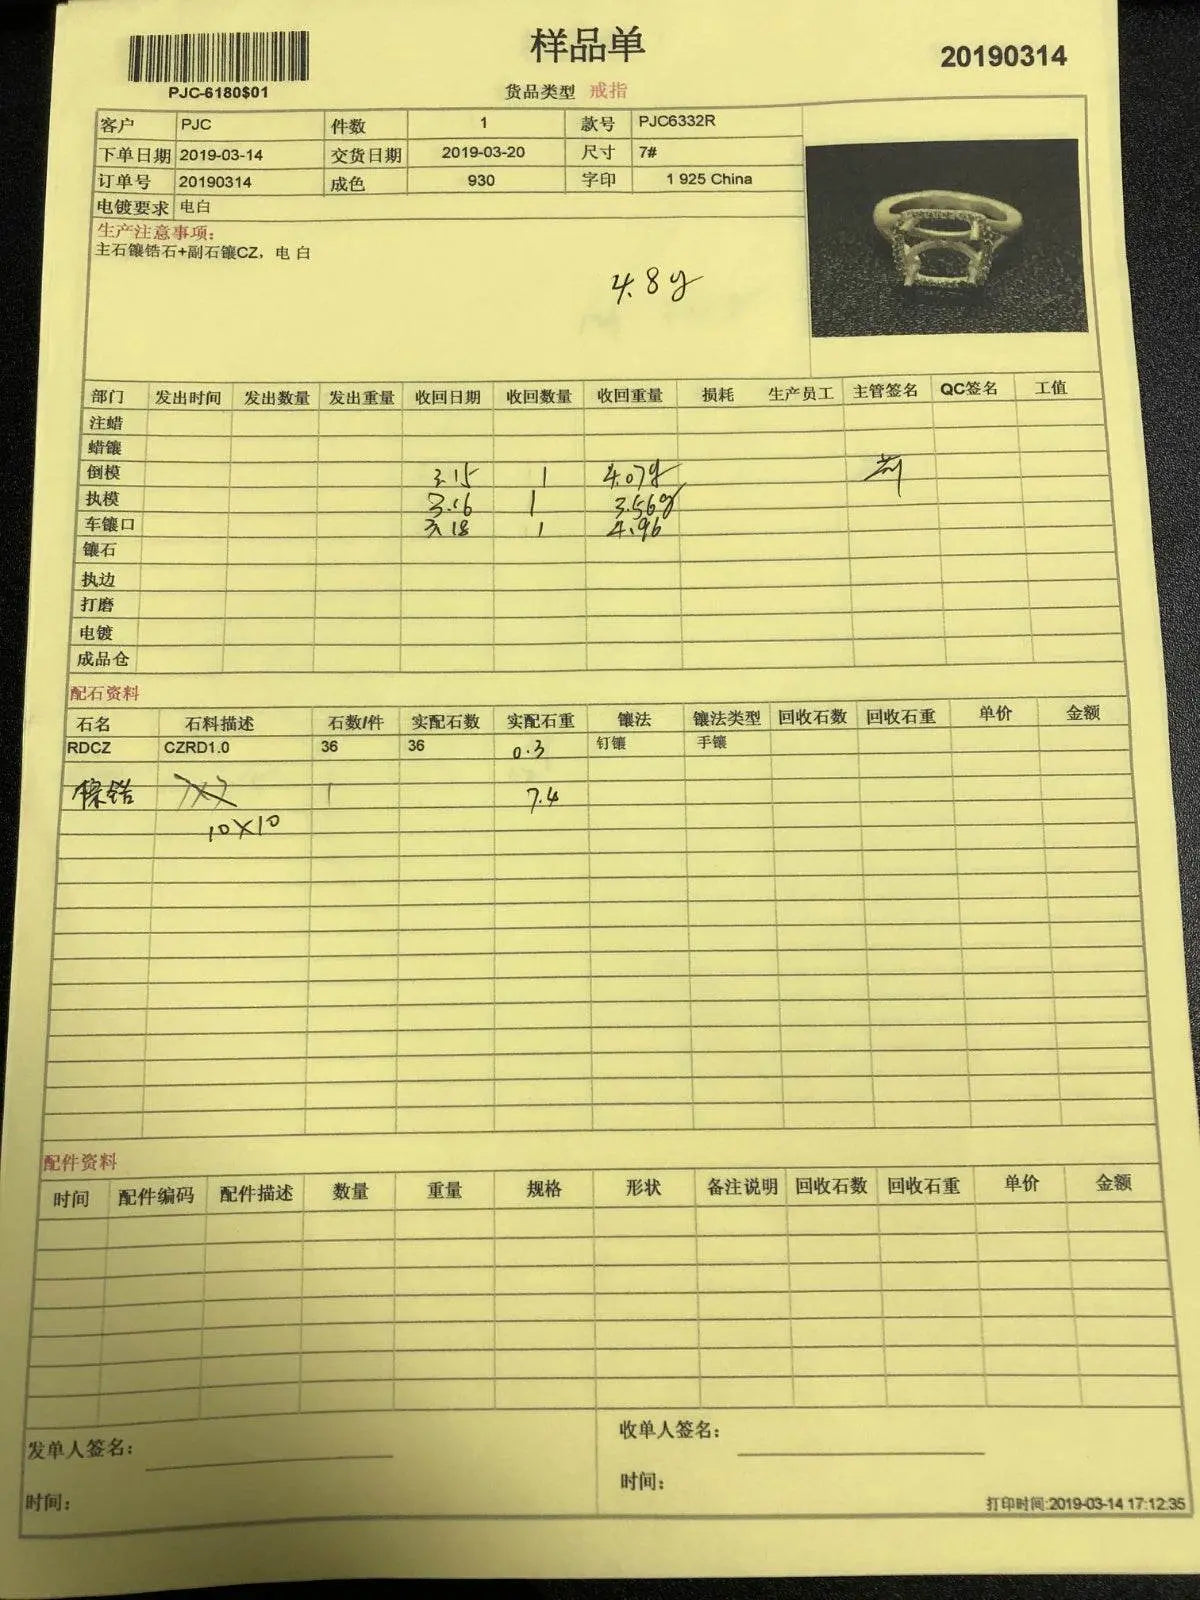 样品单
20190314
PJC-6180$01
货品类型 戒指
客户 PJC 件数 1 款号 PJC6332R
下单日期 2019-03-14 交货日期 2019-03-20 尺寸 7#
订单号 20190314 成色 930 字印 1 925 China
电镀要求 电白
生产注意事项:
主石镶锆石+副石镶CZ，电 白
4.8g
部门 发出时间 发出数量 发出重量 收回日期 收回数量 收回重量 损耗 生产员工 主管签名 QC签名 工值
注蜡
蜡镶
倒模 3.15 1 4.07g
执模 3.16 1 3.56g
车镶口 3.18 1 4.96
镶石
执边
打磨
电镀
成品仓
配石资料
石名 石料描述 石数/件 实配石数 实配石重 镶法 镶法类型 回收石数 回收石重 单价 金额
RDCZ CZRD1.0 36 36 0.3 钉镶 手镶
棕锆 7X7 1 7.4
10X10
配件资料
时间 配件编码 配件描述 数量 重量 规格 形状 备注说明 回收石数 回收石重 单价 金额
发单人签名: 收单人签名:
时间: 时间:
打印时间:2019-03-14 17:12:35